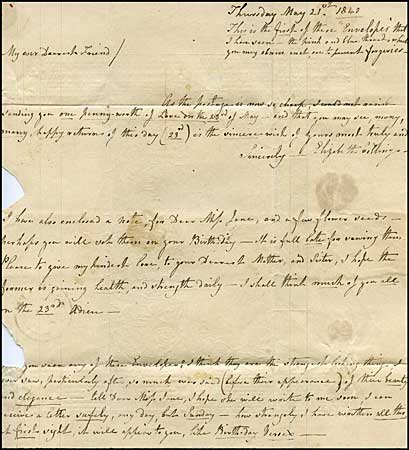 Thursday May 21st 1840
This is the first of these "Envelopes" that
I have seen — the pink and blue threads
you may observe are to prevent forgeries
My ever Dearest Friend /
As the postage is now so cheap, I could not resist
sending you one penny-worth of Love on the 23rd of May — and that you may see, many,
many, happy returns of this day (23d) is the sincere wish of yours most truly and
Sincerely Elizabeth
I have also enclosed a note, for Dear Miss Jane, and a few flower seeds —
perhaps you will sow them on your Birthday — It is full late for sowing them
Please to give my kindest love, to your Dearest Mother, and Sister, I hope the
former is gaining health, and strength daily — I shall think much of you all
on the 23rd Adieu —
you seen any of these Envelopes, I think they are the strangest looking things, I
ever saw, particularly after, so much was said (before their appearance) of their beauty
and elegance — tell Dear Miss Jane, I hope she will write to me soon, I can
receive a letter safely, any day, but Sunday — how strangely I have written all this
at first sight, it will appear to you, like Birth-day Verses —